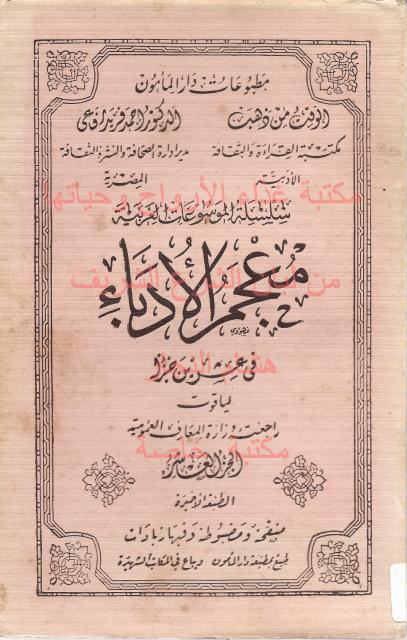 مطبوعات دار المأمون
الوقت من ذهب
الدكتور أحمد فريد رفاعي
مكتبة القراءة والثقافة
مدير إدارة الصحافة والنشر والثقافة
الأدبية
المصرية
مكتبة غذاء الأرواح وحياتها
سلسلة الموسوعات العربية
معجم الأدباء
الشرع الشريف
في عشرين جزءا
هشام النجار
لياقوت
راجعته وزارة المعارف العمومية
مكتبة خاصة
الجزء العاشر
الطبعة الأخيرة
منقحة ومضبوطة وفيها زيادات
طبع بمطبعة دار المأمون ويباع في المكاتب الشهيرة